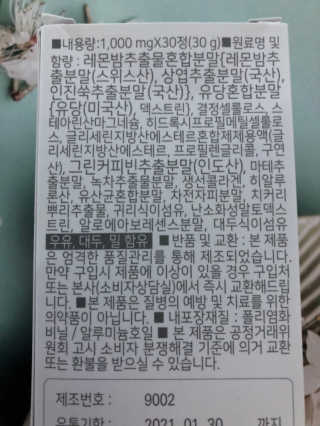 ■내용량:1,000 mgX30정(30 g)■원료명 및
함량 : 레몬밤추출물혼합분말{레몬밤추
출분말(스위스산), 상엽추출분말(국산),
인진쑥추출분말(국산)}, 유당혼합분말
{유당(미국산), 덱스트린}, 결정셀룰로스, 스
테아린산마그네슘, 히드록시프로필메틸셀룰로
스, 글리세린지방산에스테르혼합제제용액(글
리세린지방산에스테르, 프로필렌글리콜, 구연
산), 그린커피빈추출분말(인도산), 마테추
출분말, 녹차추출물분말, 생선콜라겐, 히알루
론산, 유산균혼합분말, 차전자피분말, 치커리
뿌리추출물, 귀리식이섬유, 난소화성말토덱스
트린, 알로에아보레센스분말, 대두식이섬유
우유, 대두, 밀 함유 ■ 반품 및 교환 : 본 제품
은 엄격한 품질관리를 통해 제조되었습니다.
만약 구입시 제품에 이상이 있을 경우 구입처
또는 본사(소비자상담실)에서 즉시 교환해드립
니다. ■ 본 제품은 질병의 예방 및 치료를 위한
의약품이 아닙니다. ■ 내포장재질 : 폴리염화
비닐 / 알루미늄호일 ■ 본 제품은 공정거래위
원회 고시 소비자 분쟁해결 기준에 의거 교환
또는 환불을 받으실 수 있습니다.
제조번호 : 9002
유통기한 : 2021.01.30 까지